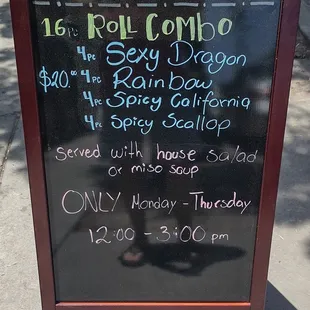 16 pc Roll Combo
4 pc Sexy Dragon
$20.00 4 pc Rainbow
4 pc Spicy California
4 pc Spicy Scallop
Served with house salad
or miso soup
ONLY Monday - Thursday
12:00 - 3:00 pm